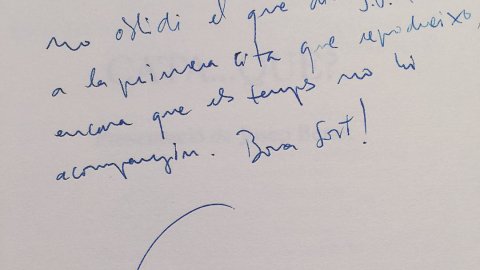 no oblidi el que diu
a la primera cita que reprodueixo,
encara que els temps no hi
acompanyin. Bona sort!